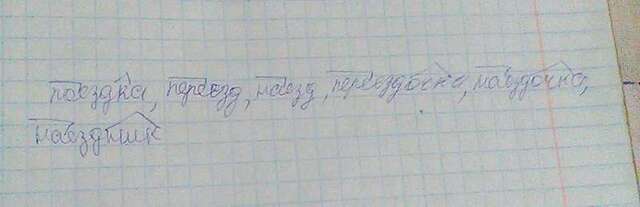 поездка, переезд, наезд, переездочка, наездочка,
наездник